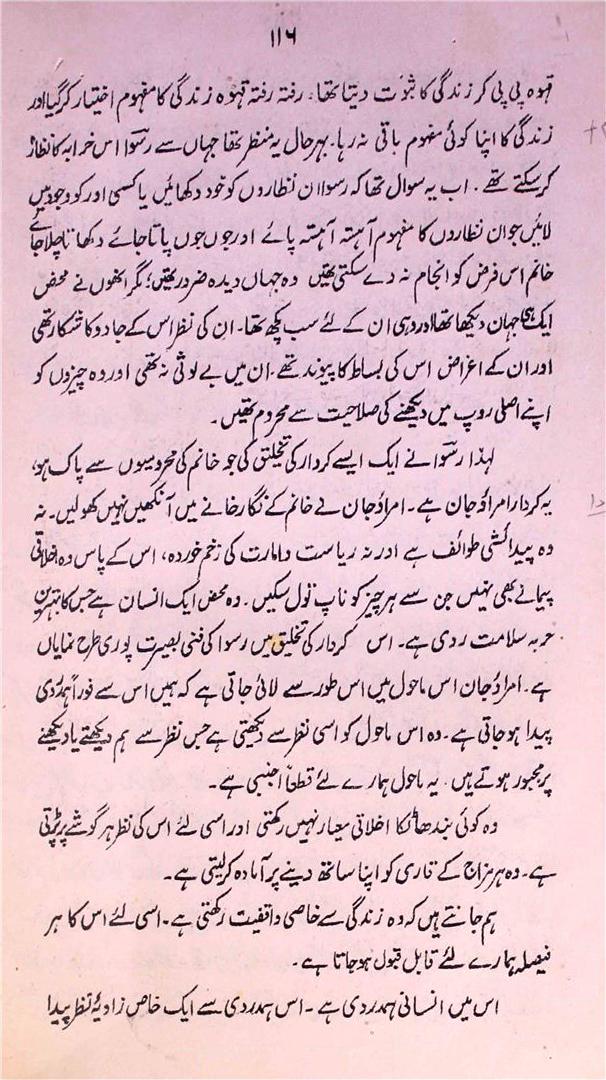 ۱۱۶
قہوہ پی پی کر زندگی کا ثبوت دیتا تھا۔ رفتہ رفتہ قہوہ زندگی کا مفہوم اختیار کر گیا اور
زندگی کا اپنا کوئی مفہوم باقی نہ رہا۔ بہرحال یہ منظر تھا جہاں سے رسوا اس خرابہ کا نظارہ
کر سکتے تھے۔ اب یہ سوال تھا کہ رسوا ان نظاروں کو خود دکھائیں یا کسی اور کو وجود میں
لائیں جو ان نظاروں کا مفہوم آہستہ آہستہ پائے اور جوں جوں پاتا جائے دکھاتا چلا جائے
خانم اس فرض کو انجام نہ دے سکتی تھیں وہ جہاں دیدہ ضرور تھیں؛ مگر انھوں نے محض
ایک ہی جہان دیکھا تھا اور وہی ان کے لئے سب کچھ تھا۔ ان کی نظر اس کے جادو کا شکار تھی
اور ان کے اغراض اس کی بساط کا پیوند تھے۔ ان میں بے لوثی نہ تھی اور وہ چیزوں کو
اپنے اصلی روپ میں دیکھنے کی صلاحیت سے محروم تھیں۔
لہذا رسوا نے ایک ایسے کردار کی تخلیق کی جو خانم کی محرومیوں سے پاک ہو،
یہ کردار امراؤ جان ہے۔ امراؤ جان نے خانم کے نگار خانے میں آنکھیں نہیں کھولیں۔ نہ
وہ پیدائشی طوائف ہے اور نہ ریاست و امارت کی زخم خوردہ، اس کے پاس وہ اخلاقی
پیمانے بھی نہیں جن سے ہر چیز کو ناپ تول سکیں۔ وہ محض ایک انسان ہے جس کا بہترین
حربہ سلامت روی ہے۔ اس کردار کی تخلیق میں رسوا کی فنی بصیرت پوری طرح نمایاں
ہے۔ امراؤ جان اس ماحول میں اس طور سے لائی جاتی ہے کہ ہمیں اس سے فوراً ہمدردی
پیدا ہو جاتی ہے۔ وہ اس ماحول کو اسی نظر سے دیکھتی ہے جس نظر سے ہم دیکھتے یا دیکھنے
پر مجبور ہوتے ہیں۔ یہ ماحول ہمارے لئے قطعاً اجنبی ہے۔
وہ کوئی بندھا ٹکا اخلاقی معیار نہیں رکھتی اور اسی لئے اس کی نظر ہر گوشے پر پڑتی
ہے۔ وہ ہر مزاج کے قاری کو اپنا ساتھ دینے پر آمادہ کر لیتی ہے۔
ہم جانتے ہیں کہ وہ زندگی سے خاصی واقفیت رکھتی ہے۔ اسی لئے اس کا ہر
فیصلہ ہمارے لئے قابل قبول ہو جاتا ہے۔
اس میں انسانی ہمدردی ہے۔ اس ہمدردی سے ایک خاص زاویۂ نظر پیدا